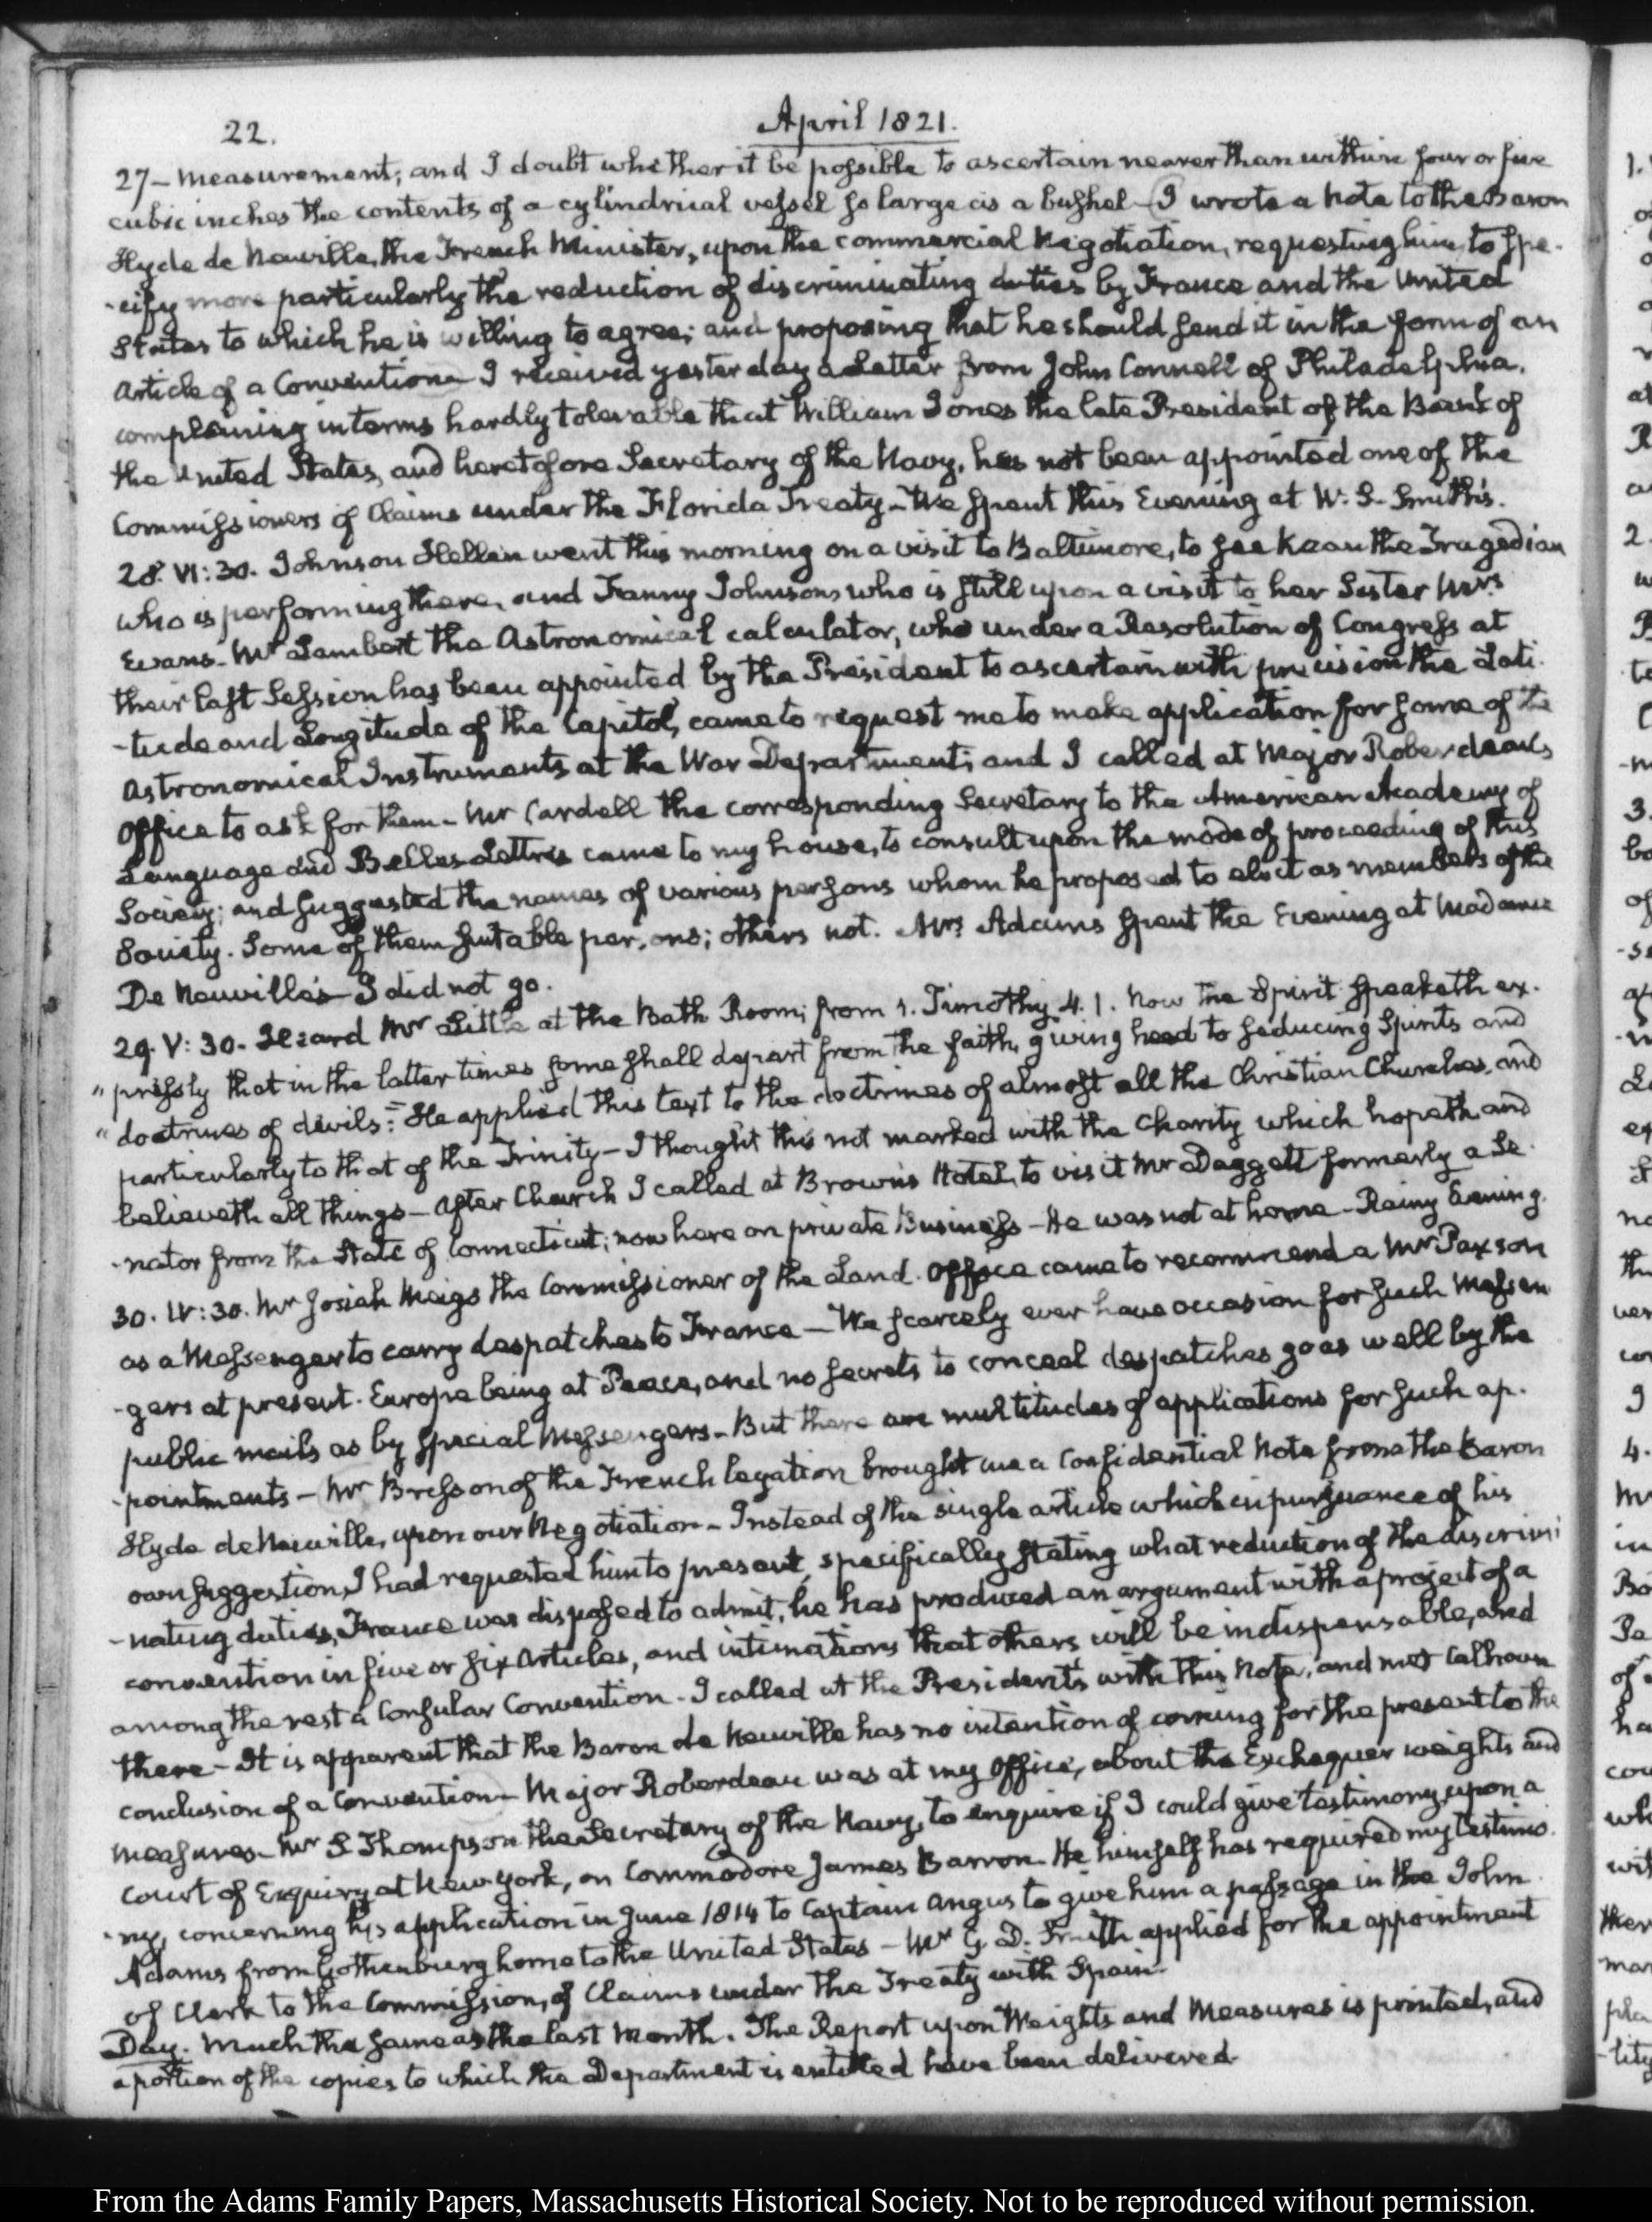 22.
April 1821.
27 — measurement; and I doubt whether it be possible to ascertain nearer than within four or five
cubic inches the contents of a cylindrical vessel so large as a bushel — I wrote a Note to the Baron
Hyde de Neuville, the French Minister, upon the commercial Negotiation, requesting him to spe-
-cify more particularly the reduction of discriminating duties by France and the United
States to which he is willing to agree; and proposing that he should send it in the form of an
Article of a Convention — I received yesterday a Letter from John Connell of Philadelphia,
complaining in terms hardly tolerable that William Jones the late President of the Bank of
the United States, and heretofore Secretary of the Navy, has not been appointed one of the
Commissioners of Claims under the Florida Treaty — We spent this Evening at W. S. Smith's.
28. VI:30. Johnson Hellen went this morning on a visit to Baltimore, to see Kean the Tragedian
who is performing there, and Fanny Johnson who is still upon a visit to her Sister Mrs
Evans — Mr Lambert the Astronomical calculator, who under a Resolution of Congress at
their last Session has been appointed by the President to ascertain with precision the Lati-
-tude and Longitude of the Capitol, came to request me to make application for some of the
Astronomical Instruments at the War Department; and I called at Major Roberdeau's
Office to ask for them — Mr Cardell the corresponding Secretary to the American Academy of
Language and Belles Lettres came to my house, to consult upon the mode of proceeding of this
Society; and suggested the names of various persons whom he proposed to elect as members of the
Society. Some of them suitable persons; others not. Mrs Adams spent the Evening at Madame
De Neuville's — I did not go.
29. V:30. Heard Mr Little at the Bath Room; from 1. Timothy 4. 1. Now the Spirit speaketh ex-
"pressly that in the latter times some shall depart from the faith, giving heed to seducing Spirits and
"doctrines of devils:" He applied this text to the doctrines of almost all the Christian Churches, and
particularly to that of the Trinity — I thought this not marked with the Charity which hopeth and
believeth all things — After Church I called at Brown's Hotel, to visit Mr Daggett formerly a Se-
-nator from the State of Connecticut; now here on private Business — He was not at home — Rainy Evening.
30. IV:30. Mr Josiah Meigs the Commissioner of the Land Office came to recommend a Mr Paxson
as a Messenger to carry despatches to France — We scarcely ever have occasion for such Messen-
-gers at present. Europe being at Peace, and no secrets to conceal despatches go as well by the
public mails as by special Messengers — But there are multitudes of applications for such ap-
-pointments — Mr Bresson of the French legation brought me a Confidential Note from the Baron
Hyde de Neuville, upon our Negotiation — Instead of the single article which in pursuance of his
own suggestion, I had requested him to present, specifically stating what reduction of the discrimi
-nating duties, France was disposed to admit, he has produced an argument with a project of a
convention in five or six Articles, and intimations that others will be indispensable, and
among the rest a Consular Convention — I called at the President's with this Note, and met Calhoun
there — It is apparent that the Baron de Neuville has no intention of coming for the present to the
conclusion of a Convention — Major Roberdeau was at my Office, about the Exchequer weights and
measures — Mr S Thompson the Secretary of the Navy, to enquire if I could give testimony upon a
Court of Enquiry at New-York, on Commodore James Barron — He himself has required my testimo-
-ny, concerning his application in June 1814 to Captain Angus to give him a passage in the John
Adams from Gothenburg home to the United States — Mr G. D. Smith applied for the appointment
of Clerk to the Commission, of Claims under the Treaty with Spain —
Day. Much the same as the last Month. The Report upon Weights and Measures is printed, and
a portion of the copies to which the Department is entitled have been delivered —
From the Adams Family Papers, Massachusetts Historical Society. Not to be reproduced without permission.